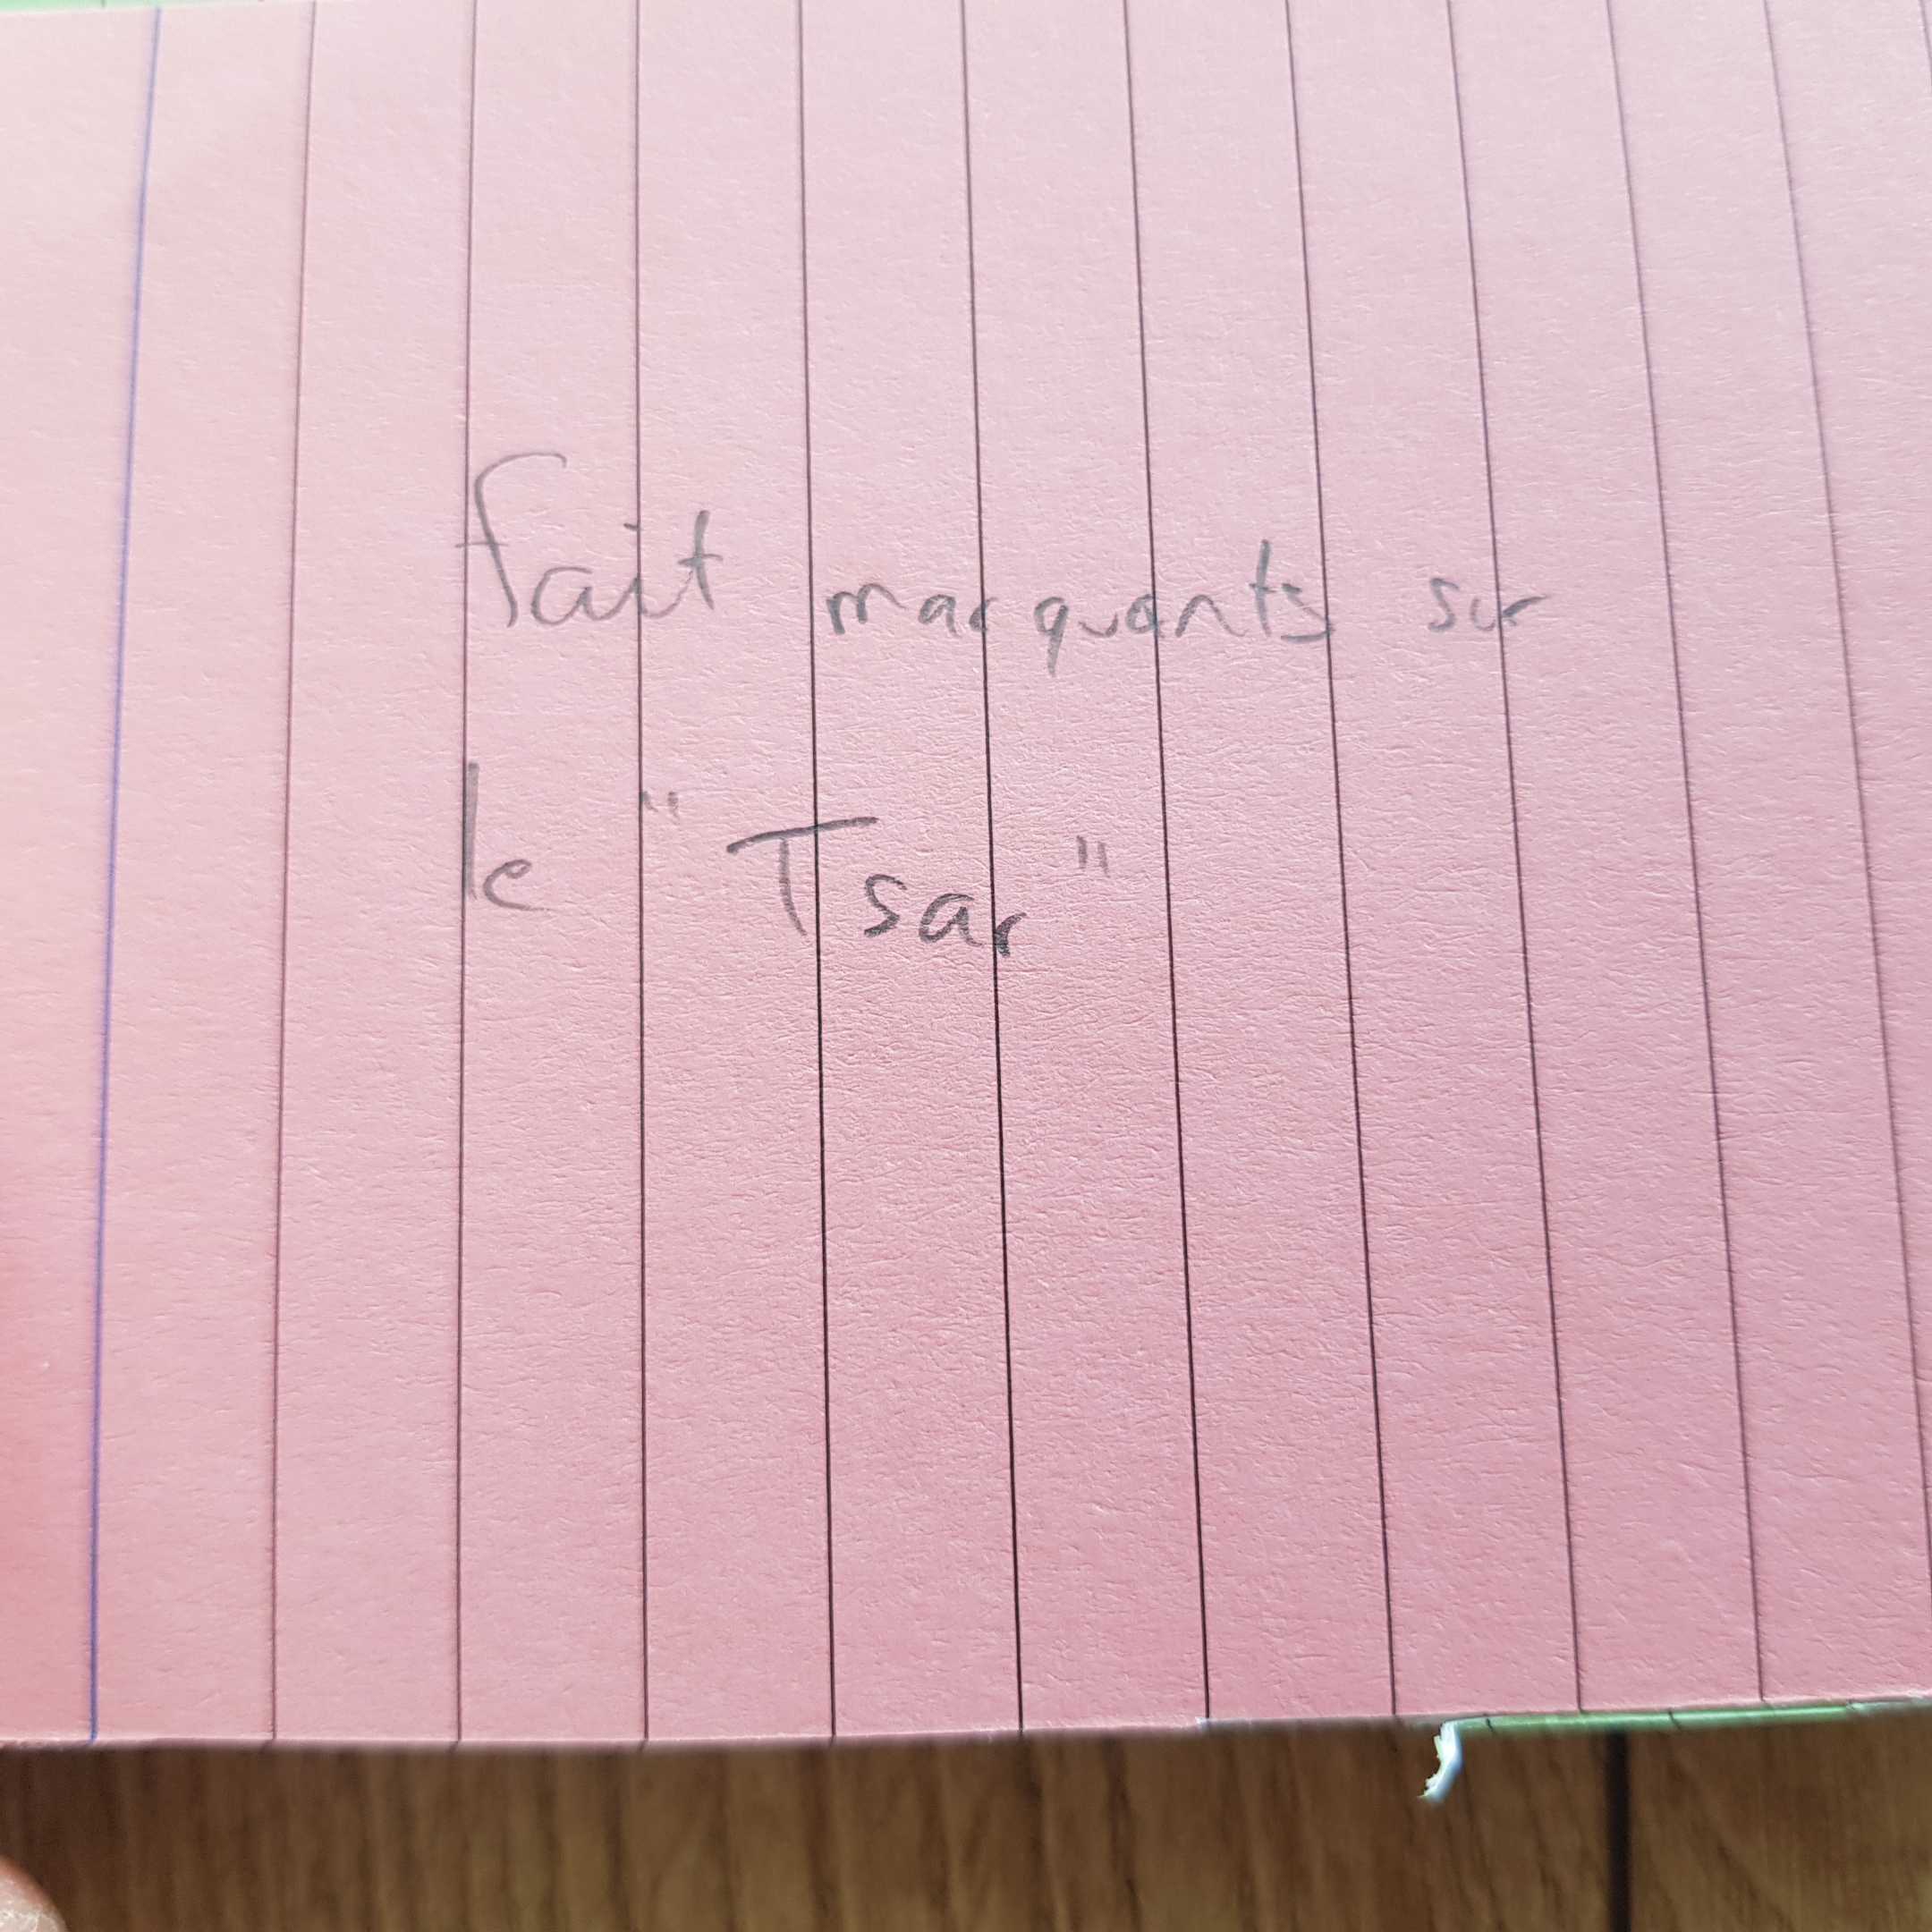 fait marquants sur
le "Tsar"